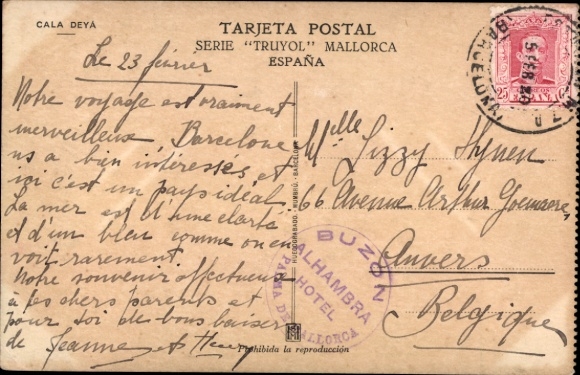 CALA DEYÁ
TARJETA POSTAL
SERIE "TRUYOL" MALLORCA
ESPAÑA
Le 23 février
Notre voyage est vraiment
merveilleux. Barcelone
ns a bien intéressés et
ici c'est un pays idéal.
La mer est d'une clarté
et d'un bleu comme on en
voit rarement.
Notre souvenir affectueux
à tes chers parents et
pour toi de bons baisers
de Jeanne et
Melle Lizzy Hynen
66 Avenue Arthur Goemaere,
Anvers
Belgique
BUZÓN
ALHAMBRA
HOTEL
PALMA DE MALLORCA
BARCELONA
25 Cs
Prohibida la reproducción